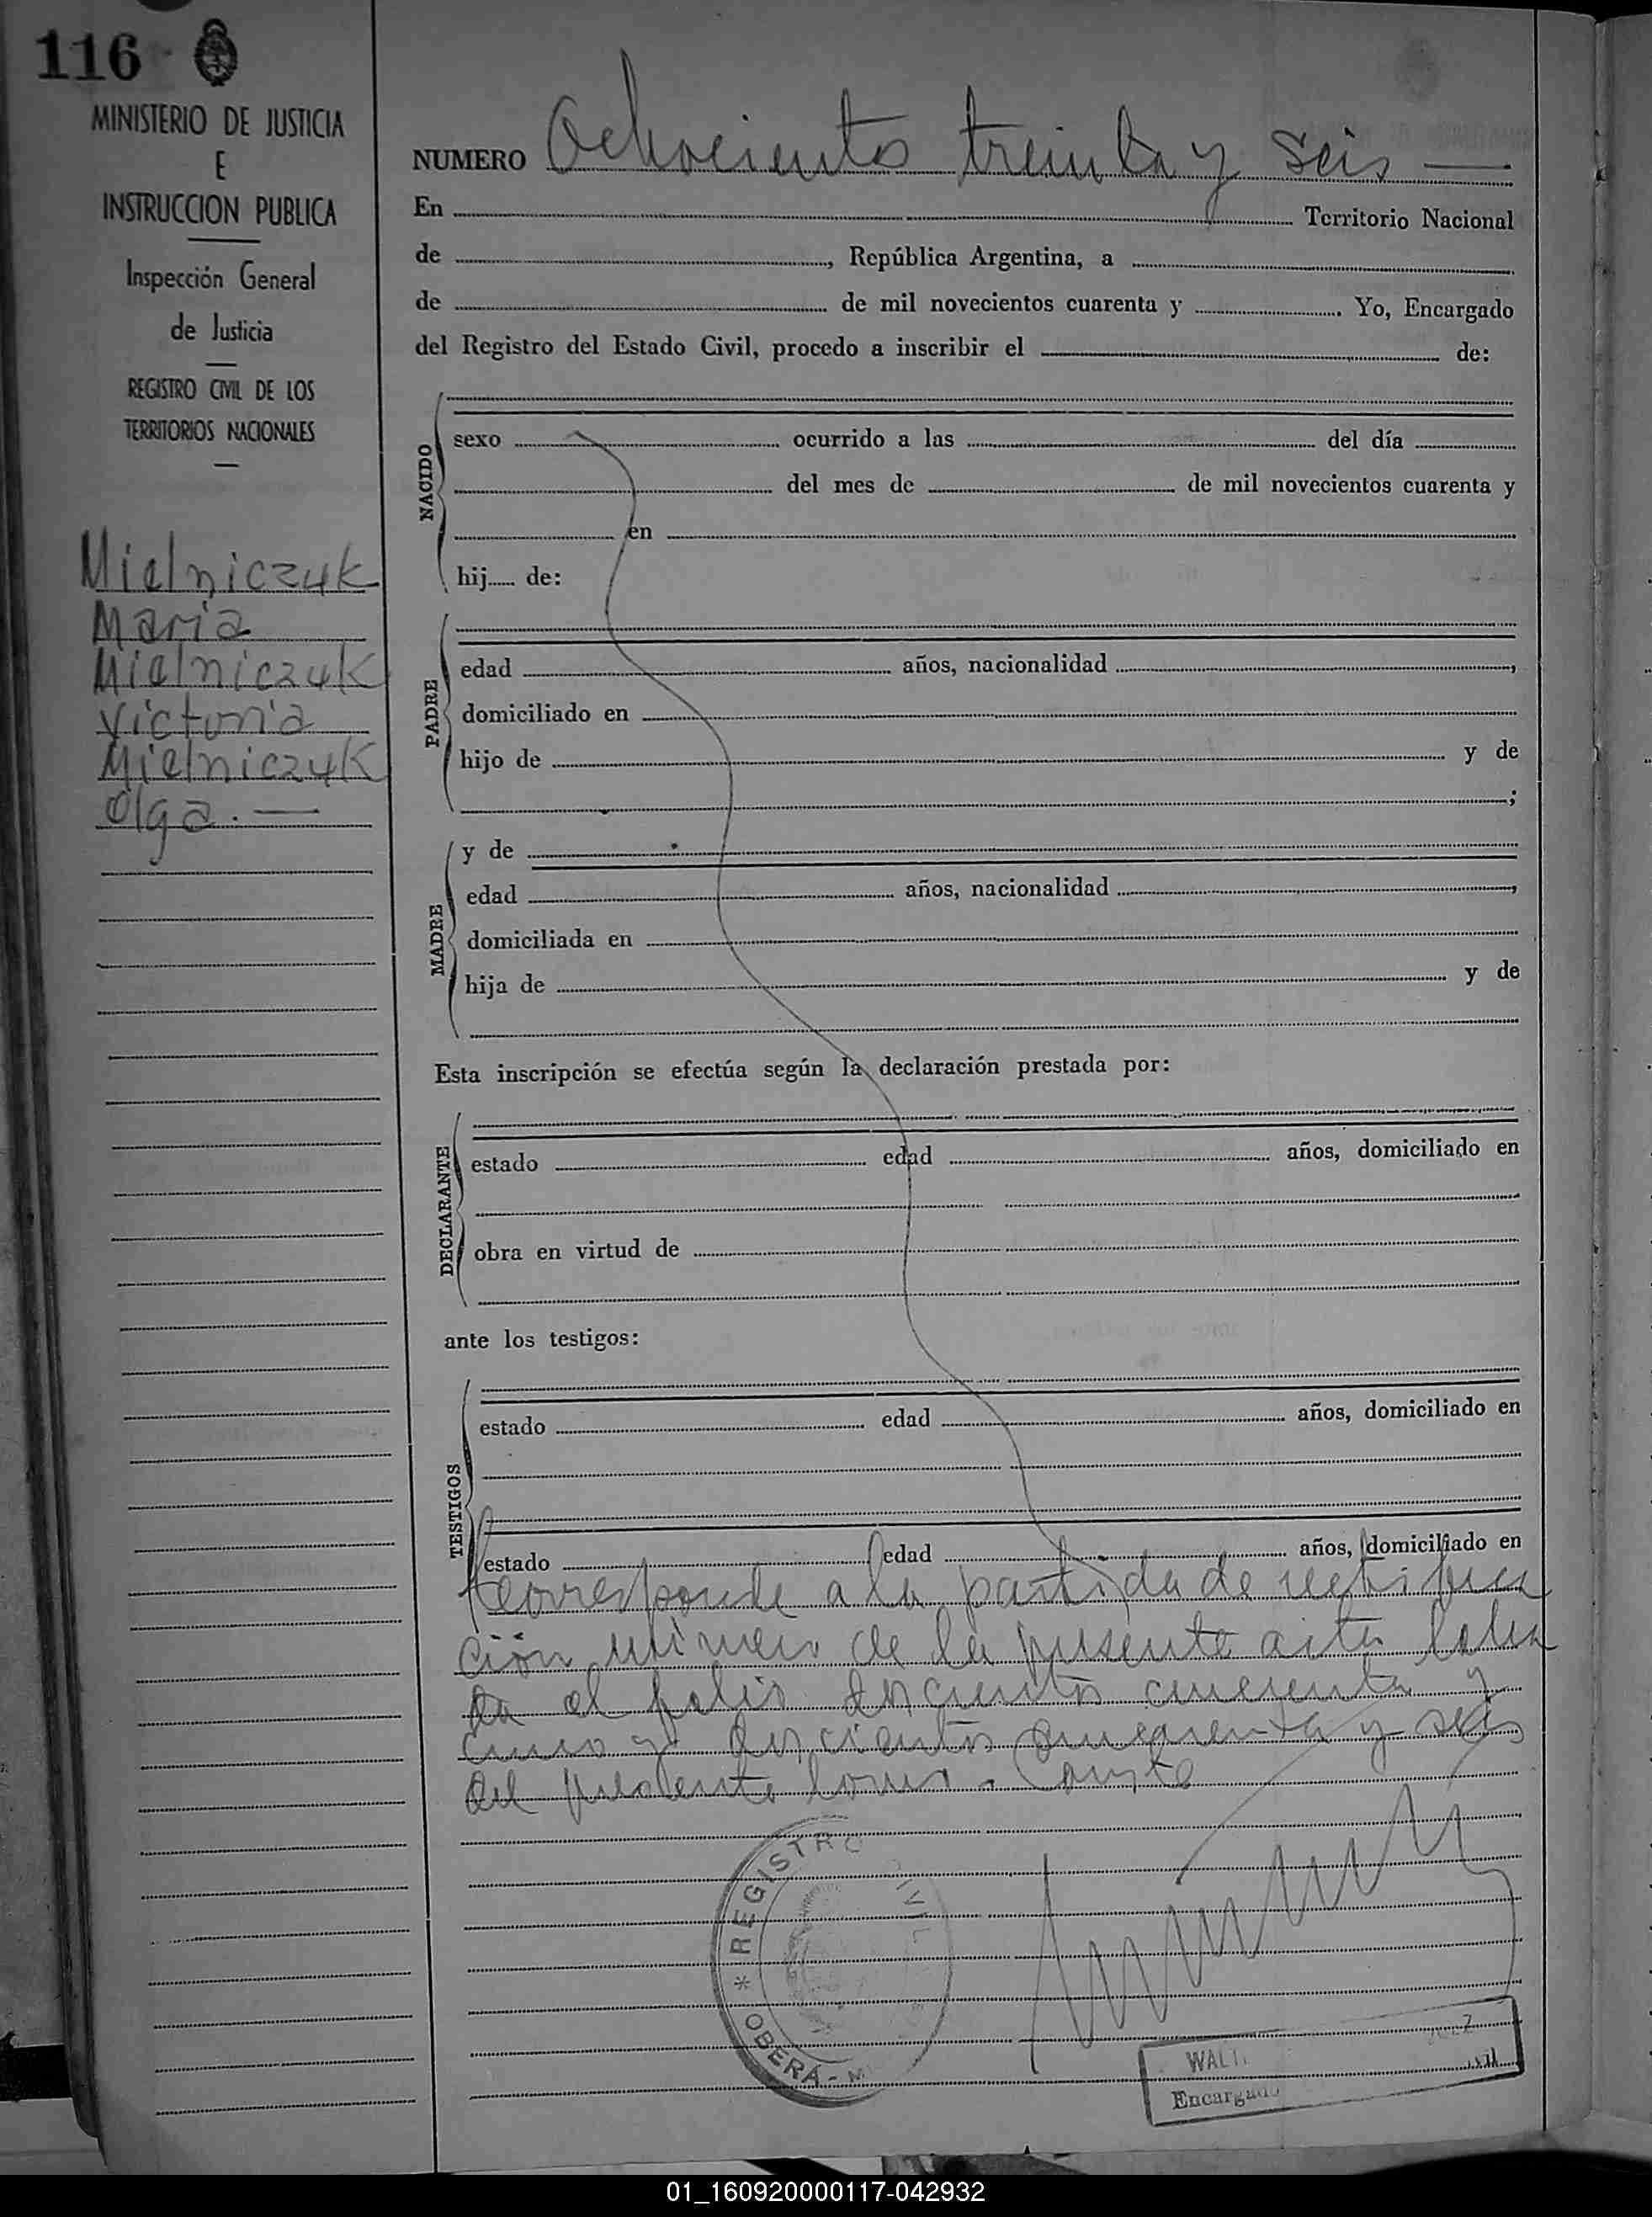 116
MINISTERIO DE JUSTICIA
E
INSTRUCCION PUBLICA
Inspección General
de Justicia
REGISTRO CIVIL DE LOS
TERRITORIOS NACIONALES
Mielniczuk
Maria
Mielniczuk
Victoria
Mielniczuk
Olga.—
NUMERO Ochocientos treinta y seis —
En Territorio Nacional
de , República Argentina, a
de de mil novecientos cuarenta y . Yo, Encargado
del Registro del Estado Civil, procedo a inscribir el de:
NACIDO
sexo ocurrido a las del día
del mes de de mil novecientos cuarenta y
en
hij de:
PADRE
edad años, nacionalidad ,
domiciliado en
hijo de y de
;
MADRE
y de
edad años, nacionalidad ,
domiciliada en
hija de y de
Esta inscripción se efectúa según la declaración prestada por:
DECLARANTE
estado edad años, domiciliado en
obra en virtud de
ante los testigos:
TESTIGOS
estado edad años, domiciliado en
estado edad años, domiciliado en
Corresponde a la partida de rectifica
ción número de la presente acta
al folio doscientos cuarenta y
cinco y doscientos cuarenta y seis
del presente tomo. Conste
REGISTRO CIVIL
* OBERÁ - M
WALT
Encargado
01_160920000117-042932